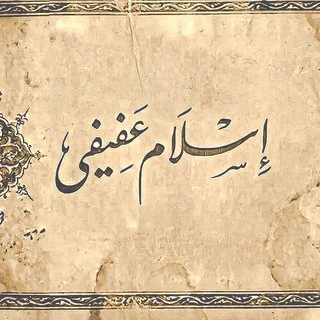 إسلام عَفِيفي